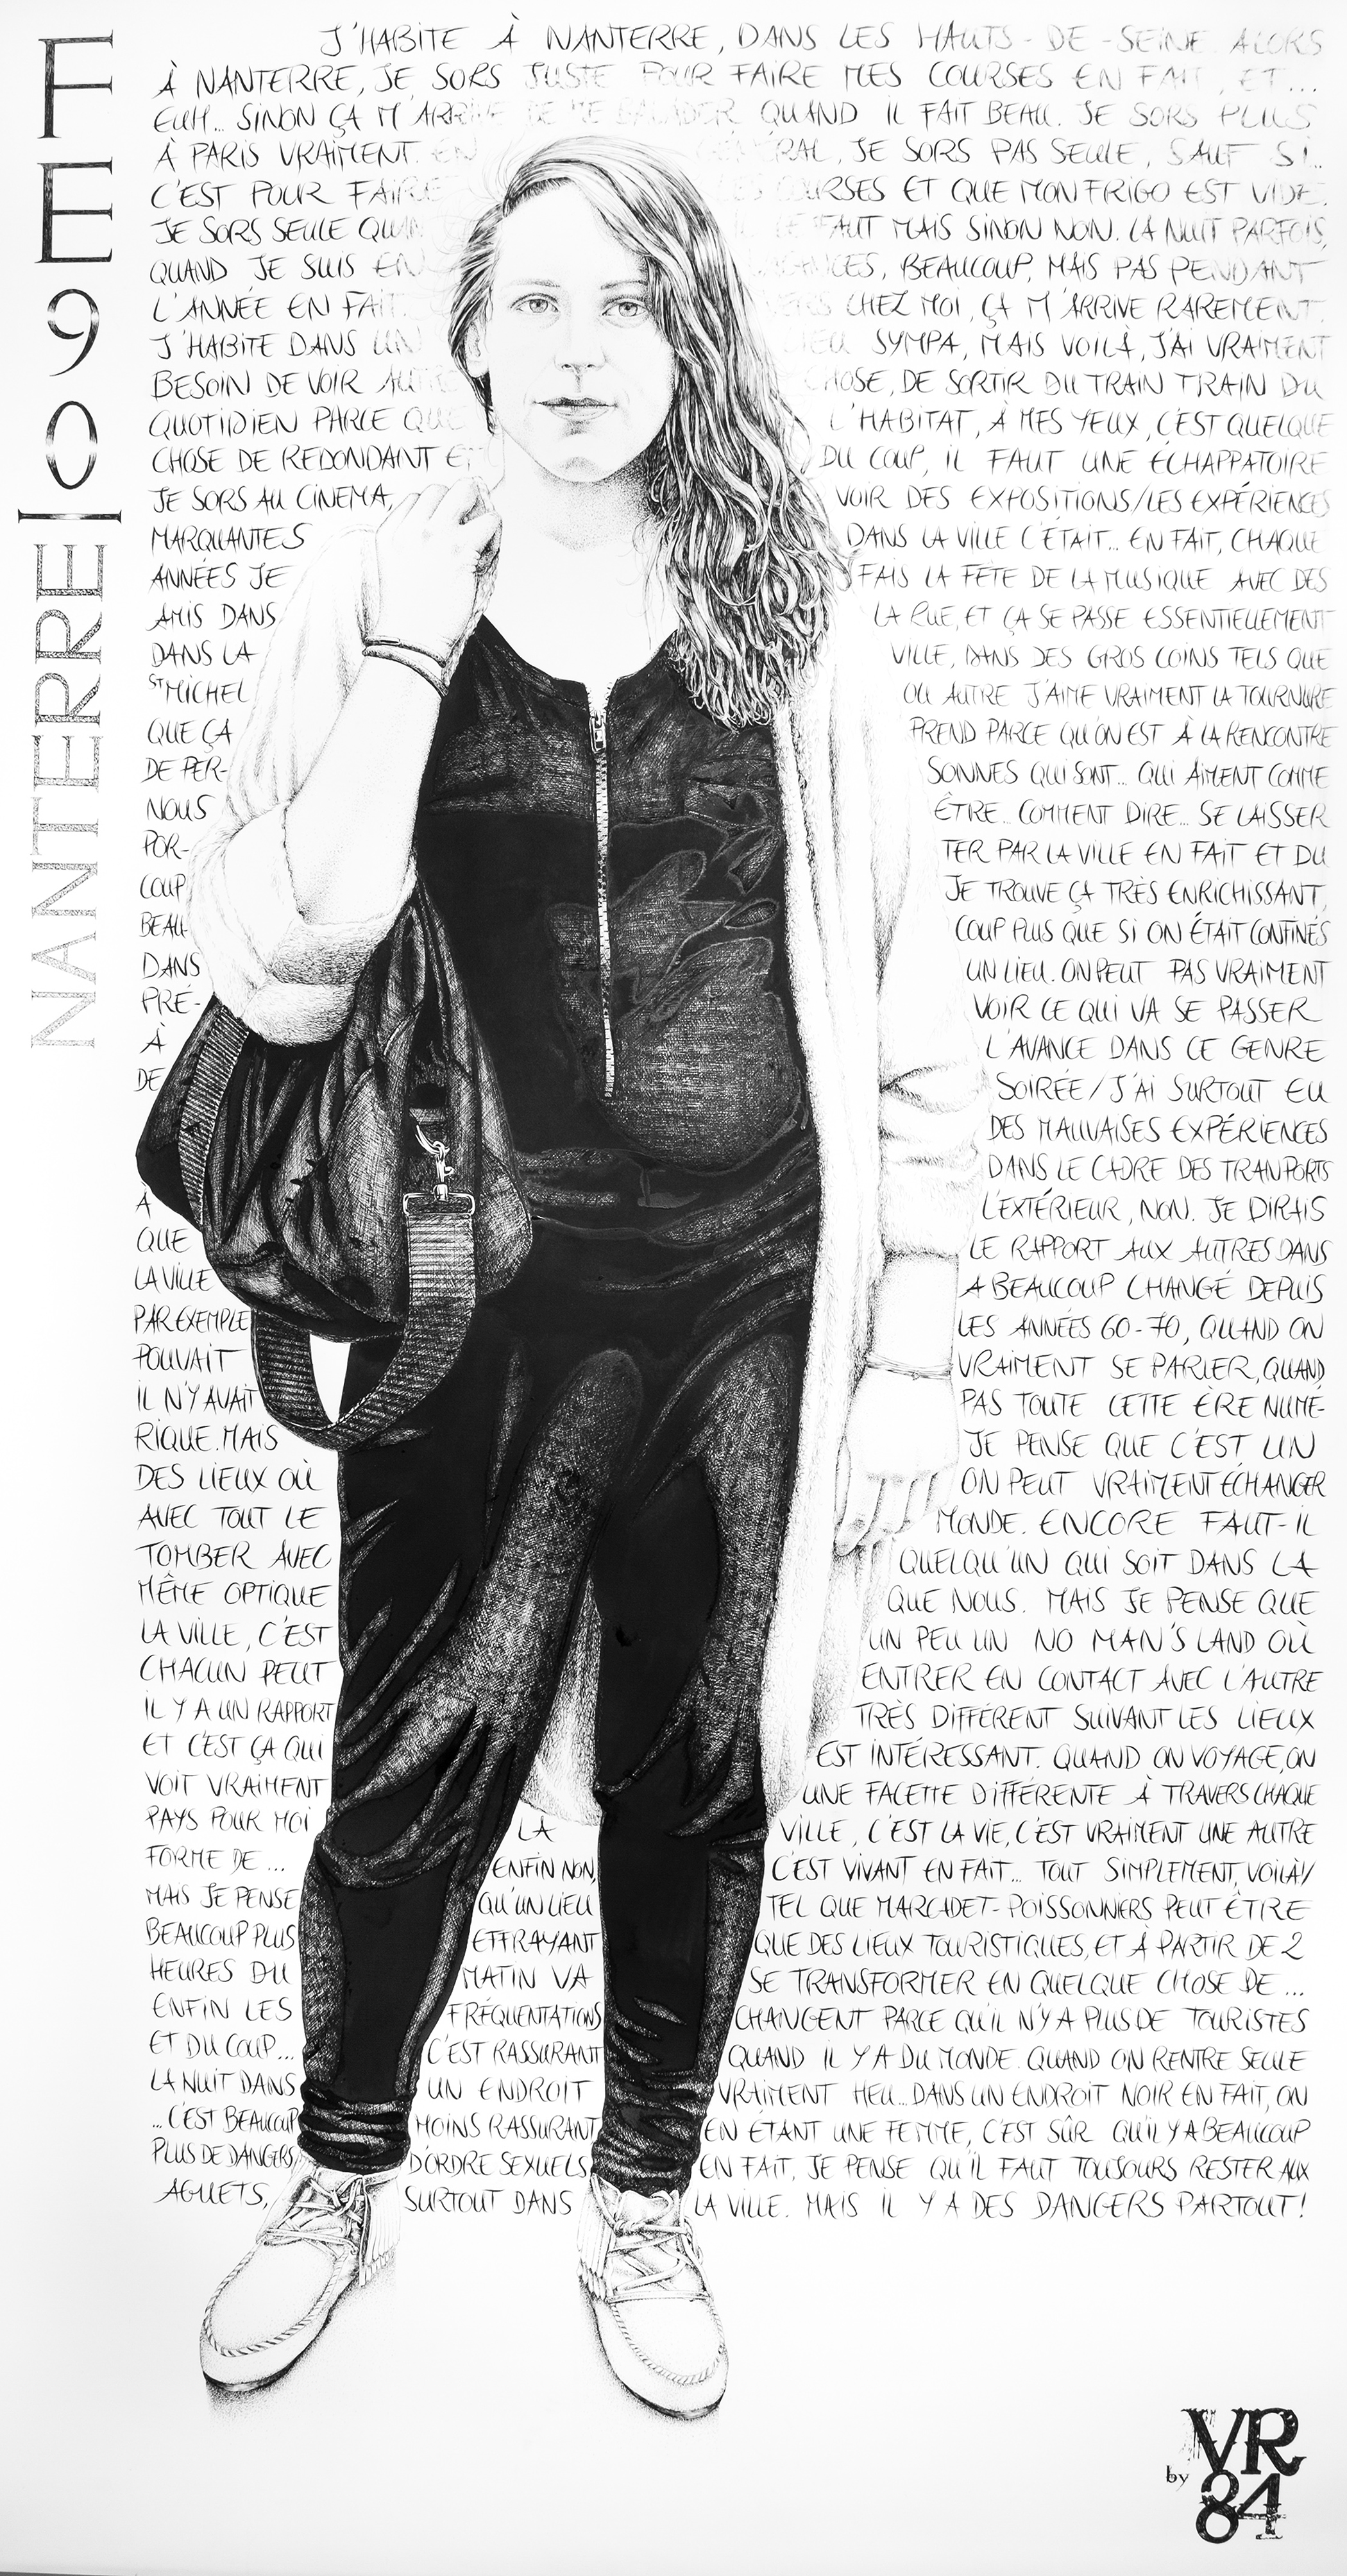 FE90|NANTERRE
J'HABITE À NANTERRE, DANS LES HAUTS-DE-SEINE. ALORS
À NANTERRE, JE SORS JUSTE POUR FAIRE MES COURSES EN FAIT, ET...
EUH... SINON ÇA M'ARRIVE DE ME BALADER QUAND IL FAIT BEAU. JE SORS PLUS
À PARIS VRAIMENT. EN GÉNÉRAL, JE SORS PAS SEULE, SAUF SI...
C'EST POUR FAIRE LES COURSES ET QUE MON FRIGO EST VIDE.
JE SORS SEULE QUAND IL LE FAUT MAIS SINON NON. LA NUIT PARFOIS,
QUAND JE SUIS EN VACANCES, BEAUCOUP, MAIS PAS PENDANT
L'ANNÉE EN FAIT. VERS CHEZ MOI, ÇA M'ARRIVE RAREMENT.
J'HABITE DANS UN LIEU SYMPA, MAIS VOILÀ, J'AI VRAIMENT
BESOIN DE VOIR AUTRE CHOSE, DE SORTIR DU TRAIN TRAIN DU
QUOTIDIEN PARCE QUE L'HABITAT, À MES YEUX, C'EST QUELQUE
CHOSE DE REDONDANT ET DU COUP, IL FAUT UNE ÉCHAPPATOIRE
JE SORS AU CINEMA, VOIR DES EXPOSITIONS/LES EXPÉRIENCES
MARQUANTES DANS LA VILLE C'ÉTAIT... EN FAIT, CHAQUE
ANNÉES JE FAIS LA FÊTE DE LA MUSIQUE AVEC DES
AMIS DANS LA RUE, ET ÇA SE PASSE ESSENTIELLEMENT
DANS LA VILLE, DANS DES GROS COINS TELS QUE
ST MICHEL OU AUTRE J'AIME VRAIMENT LA TOURNURE
QUE ÇA PREND PARCE QU'ON EST À LA RENCONTRE
DE PER- SONNES QUI SONT... QUI AIMENT COMME
NOUS ÊTRE... COMMENT DIRE... SE LAISSER
POR- TER PAR LA VILLE EN FAIT ET DU
COUP JE TROUVE ÇA TRÈS ENRICHISSANT,
BEAU- COUP PLUS QUE SI ON ÉTAIT CONFINÉS
DANS UN LIEU. ON PEUT PAS VRAIMENT
PRÉ- VOIR CE QUI VA SE PASSER
À L'AVANCE DANS CE GENRE
DE SOIRÉE/J'AI SURTOUT EU
DES MAUVAISES EXPÉRIENCES
DANS LE CADRE DES TRANPORTS
À L'EXTÉRIEUR, NON. JE DIRAIS
QUE LE RAPPORT AUX AUTRES DANS
LA VILLE A BEAUCOUP CHANGÉ DEPUIS
PAR EXEMPLE LES ANNÉES 60-70, QUAND ON
POUVAIT VRAIMENT SE PARLER, QUAND
IL N'Y AVAIT PAS TOUTE CETTE ÈRE NUMÉ-
RIQUE. MAIS JE PENSE QUE C'EST UN
DES LIEUX OÙ ON PEUT VRAIMENT ÉCHANGER
AVEC TOUT LE MONDE. ENCORE FAUT-IL
TOMBER AVEC QUELQU'UN QUI SOIT DANS LA
MÊME OPTIQUE QUE NOUS. MAIS JE PENSE QUE
LA VILLE, C'EST UN PEU UN NO MAN'S LAND OÙ
CHACUN PEUT ENTRER EN CONTACT AVEC L'AUTRE
IL Y A UN RAPPORT TRÈS DIFFÉRENT SUIVANT LES LIEUX
ET C'EST ÇA QUI EST INTÉRESSANT. QUAND ON VOYAGE, ON
VOIT VRAIMENT UNE FACETTE DIFFÉRENTE À TRAVERS CHAQUE
PAYS POUR MOI LA VILLE, C'EST LA VIE, C'EST VRAIMENT UNE AUTRE
FORME DE... ENFIN NON, C'EST VIVANT EN FAIT... TOUT SIMPLEMENT, VOILÀ!/
MAIS JE PENSE QU'UN LIEU TEL QUE MARCADET-POISSONNIERS PEUT ÊTRE
BEAUCOUP PLUS EFFRAYANT QUE DES LIEUX TOURISTIQUES, ET À PARTIR DE 2
HEURES DU MATIN VA SE TRANSFORMER EN QUELQUE CHOSE DE...
ENFIN LES FRÉQUENTATIONS CHANGENT PARCE QU'IL N'Y A PLUS DE TOURISTES
ET DU COUP... C'EST RASSURANT QUAND IL Y A DU MONDE. QUAND ON RENTRE SEULE
LA NUIT DANS UN ENDROIT VRAIMENT HEU... DANS UN ENDROIT NOIR EN FAIT, ON
...C'EST BEAUCOUP MOINS RASSURANT EN ÉTANT UNE FEMME, C'EST SÛR QU'IL Y A BEAUCOUP
PLUS DE DANGERS D'ORDRE SEXUELS EN FAIT, JE PENSE QU'IL FAUT TOUJOURS RESTER AUX
AGUETS, SURTOUT DANS LA VILLE. MAIS IL Y A DES DANGERS PARTOUT!
by VR
84